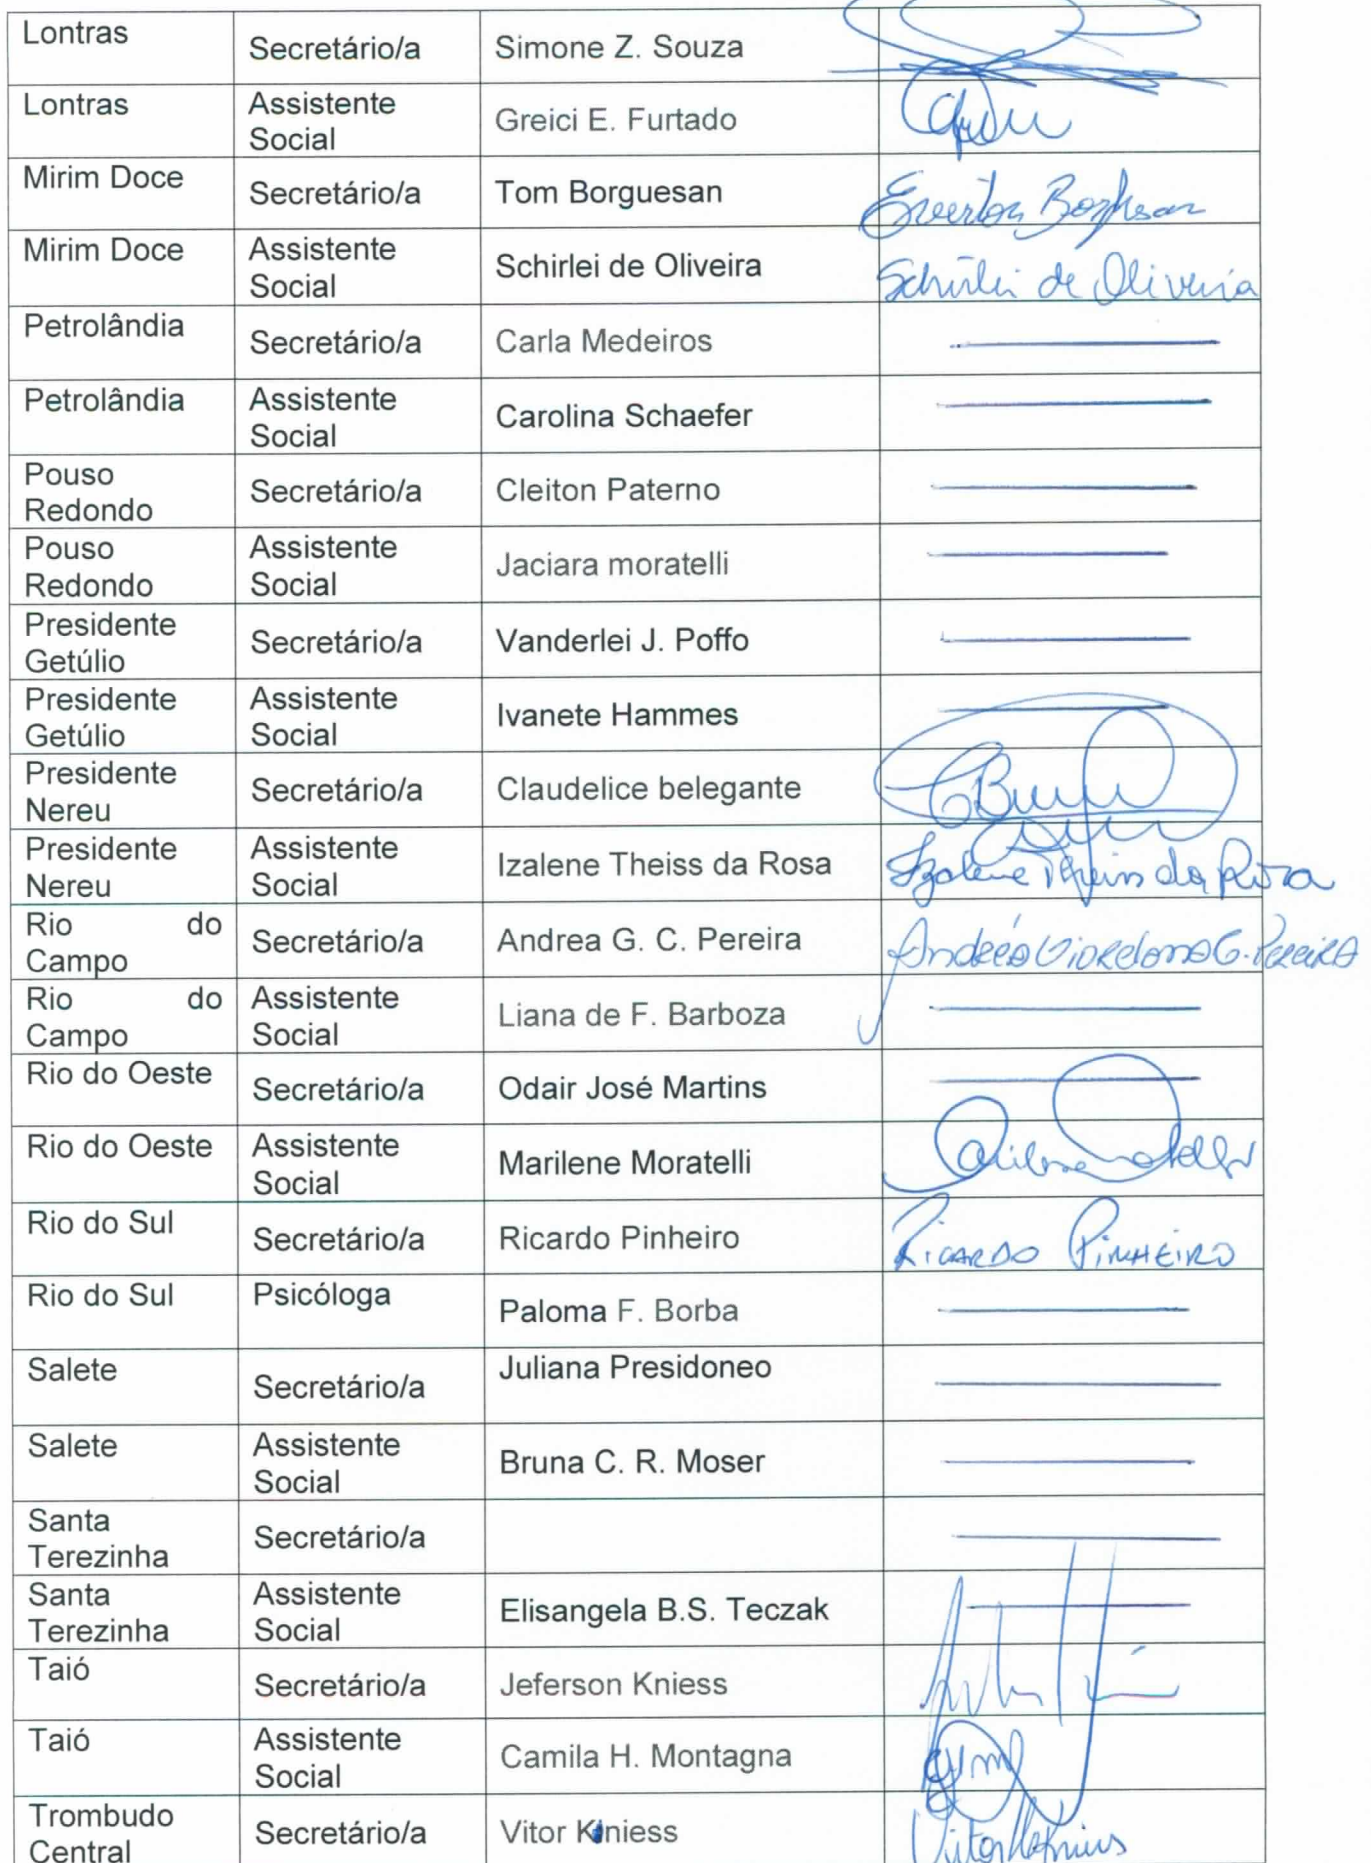 Lontras Secretário/a Simone Z. Souza
Lontras Assistente Social Greici E. Furtado
Mirim Doce Secretário/a Tom Borguesan Everton
Mirim Doce Assistente Social Schirlei de Oliveira Schirlei de Oliveira
Petrolândia Secretário/a Carla Medeiros
Petrolândia Assistente Social Carolina Schaefer
Pouso Redondo Secretário/a Cleiton Paterno
Pouso Redondo Assistente Social Jaciara moratelli
Presidente Getúlio Secretário/a Vanderlei J. Poffo
Presidente Getúlio Assistente Social Ivanete Hammes
Presidente Nereu Secretário/a Claudelice belegante
Presidente Nereu Assistente Social Izalene Theiss da Rosa Izalene Theiss da Rosa
Rio do Campo Secretário/a Andrea G. C. Pereira Andréa Giordana G. Pereira
Rio do Campo Assistente Social Liana de F. Barboza
Rio do Oeste Secretário/a Odair José Martins
Rio do Oeste Assistente Social Marilene Moratelli
Rio do Sul Secretário/a Ricardo Pinheiro RICARDO PINHEIRO
Rio do Sul Psicóloga Paloma F. Borba
Salete Secretário/a Juliana Presidoneo
Salete Assistente Social Bruna C. R. Moser
Santa Terezinha Secretário/a
Santa Terezinha Assistente Social Elisangela B.S. Teczak
Taió Secretário/a Jeferson Kniess
Taió Assistente Social Camila H. Montagna
Trombudo Central Secretário/a Vitor Kniess